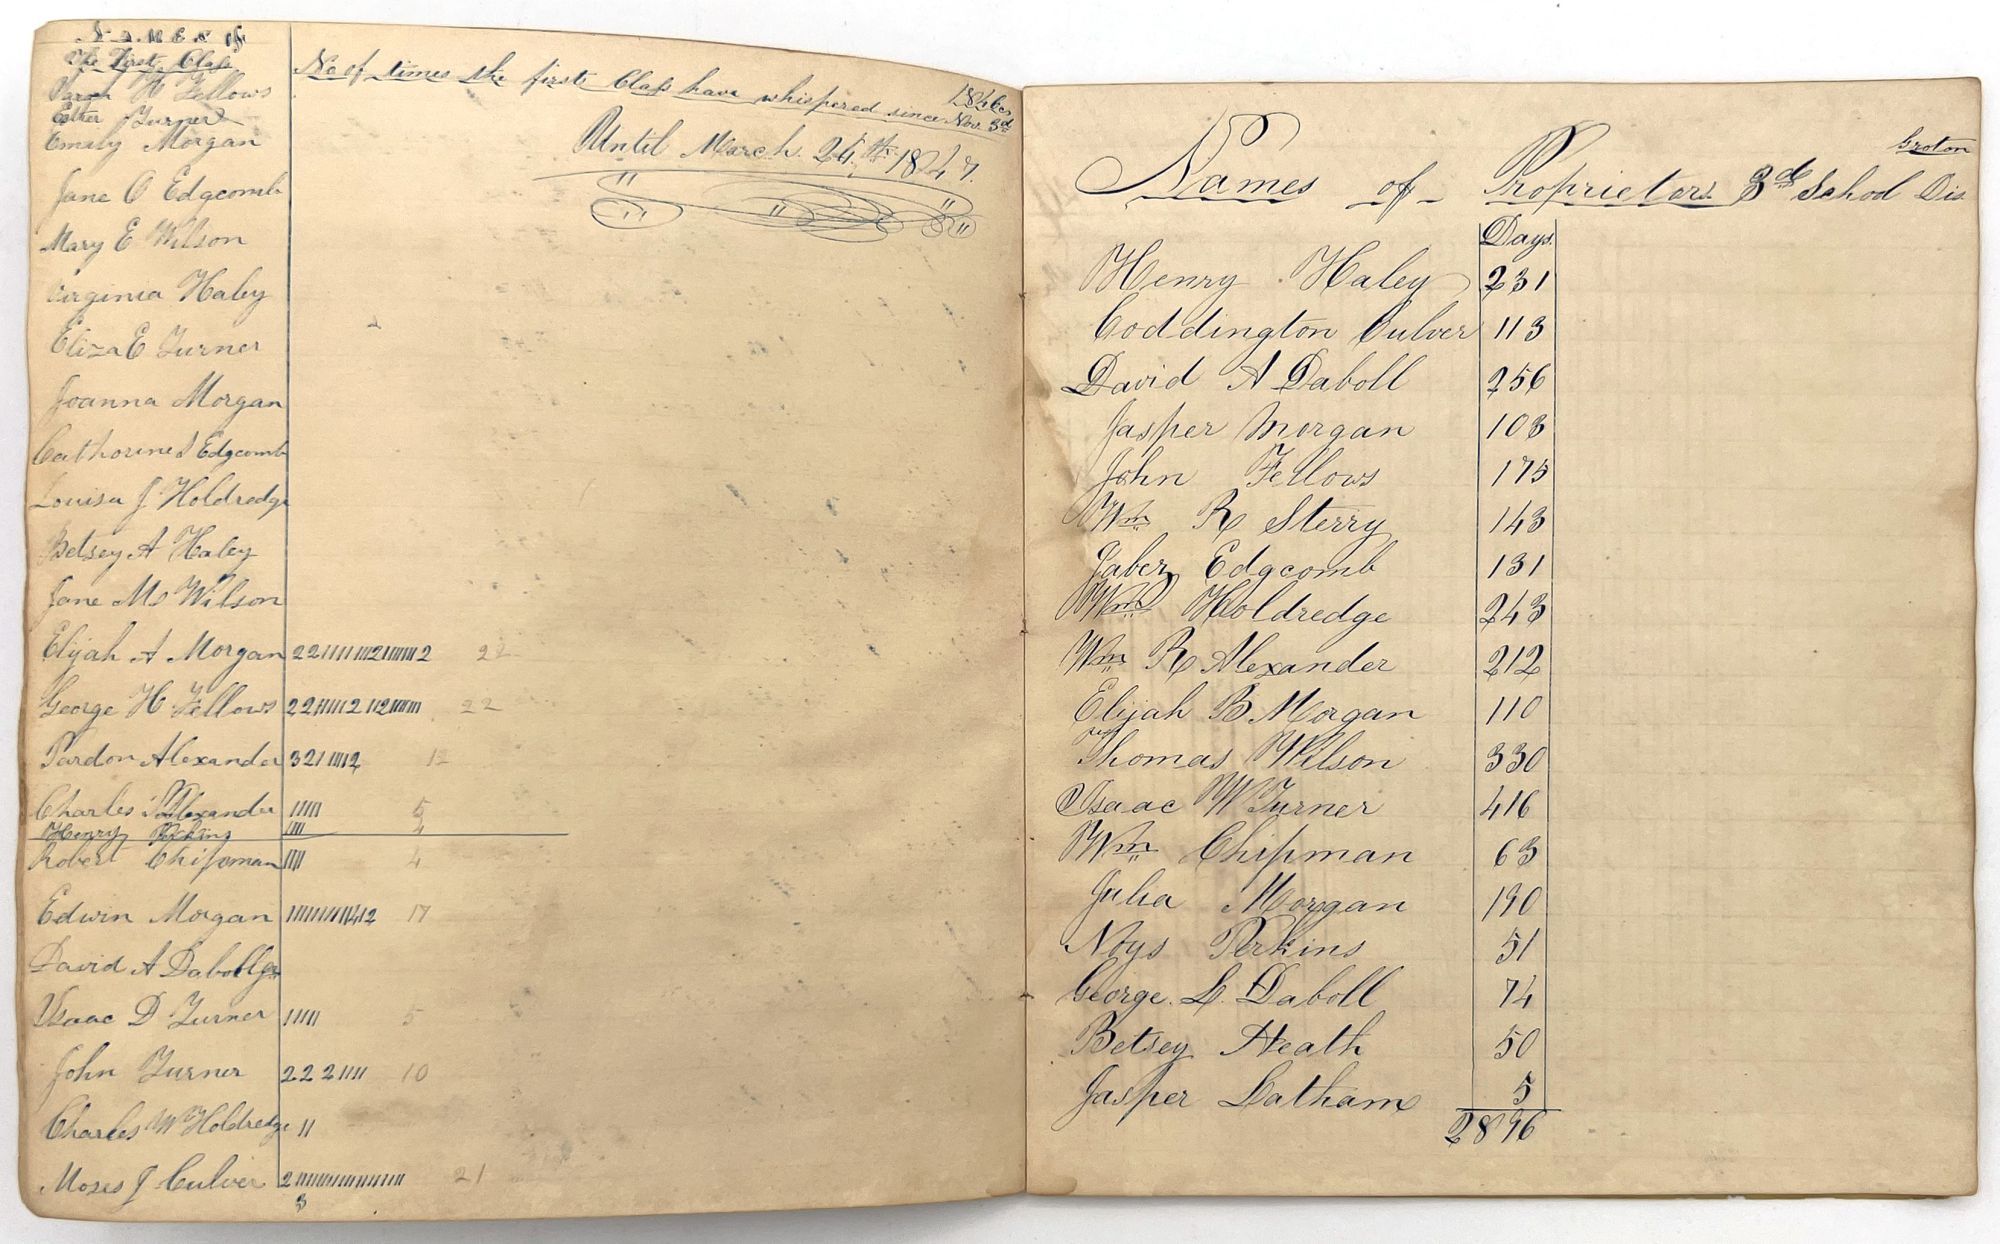 Names of
The First Class
Sarah H Fellows
Esther Turner
Emaly Morgan
Jane O Edgcomb
Mary E Wilson
Virginia Haley
Eliza E Turner
Joanna Morgan
Catharine S Edgcomb
Louisa J Holdredge
Betsey A Haley
Jane Ms Wilson
Elijah A Morgan 22 2 2 22
George H Fellows 22 2 2 22
Pardon Alexander 32 2 12
Charles Alexander 5
Henry Perkins 4
Robert Chipman 4
Edwin Morgan 2 17
David A Daboll Jr
Isaac D Turner 5
John Turner 222 10
Charles W Holdredge
Moses J Culver 2 21
3
No of times the first Class have whispered since Nov. 3d 1846
Until March 24th 1847
Groton
Names of Proprietors 3d School Dis
Days
Henry Haley 231
Coddington Culver 113
David A Daboll 256
Jasper Morgan 103
John Fellows 175
Wm R Sterry 143
Jabez Edgcomb 131
Wm Holdredge 243
Wm R Alexander 212
Elijah B Morgan 110
Thomas Wilson 330
Isaac W Turner 416
Wm Chipman 63
Julia Morgan 190
Noys Perkins 51
George L. Daboll 74
Betsey Heath 50
Jasper Latham 5
2896